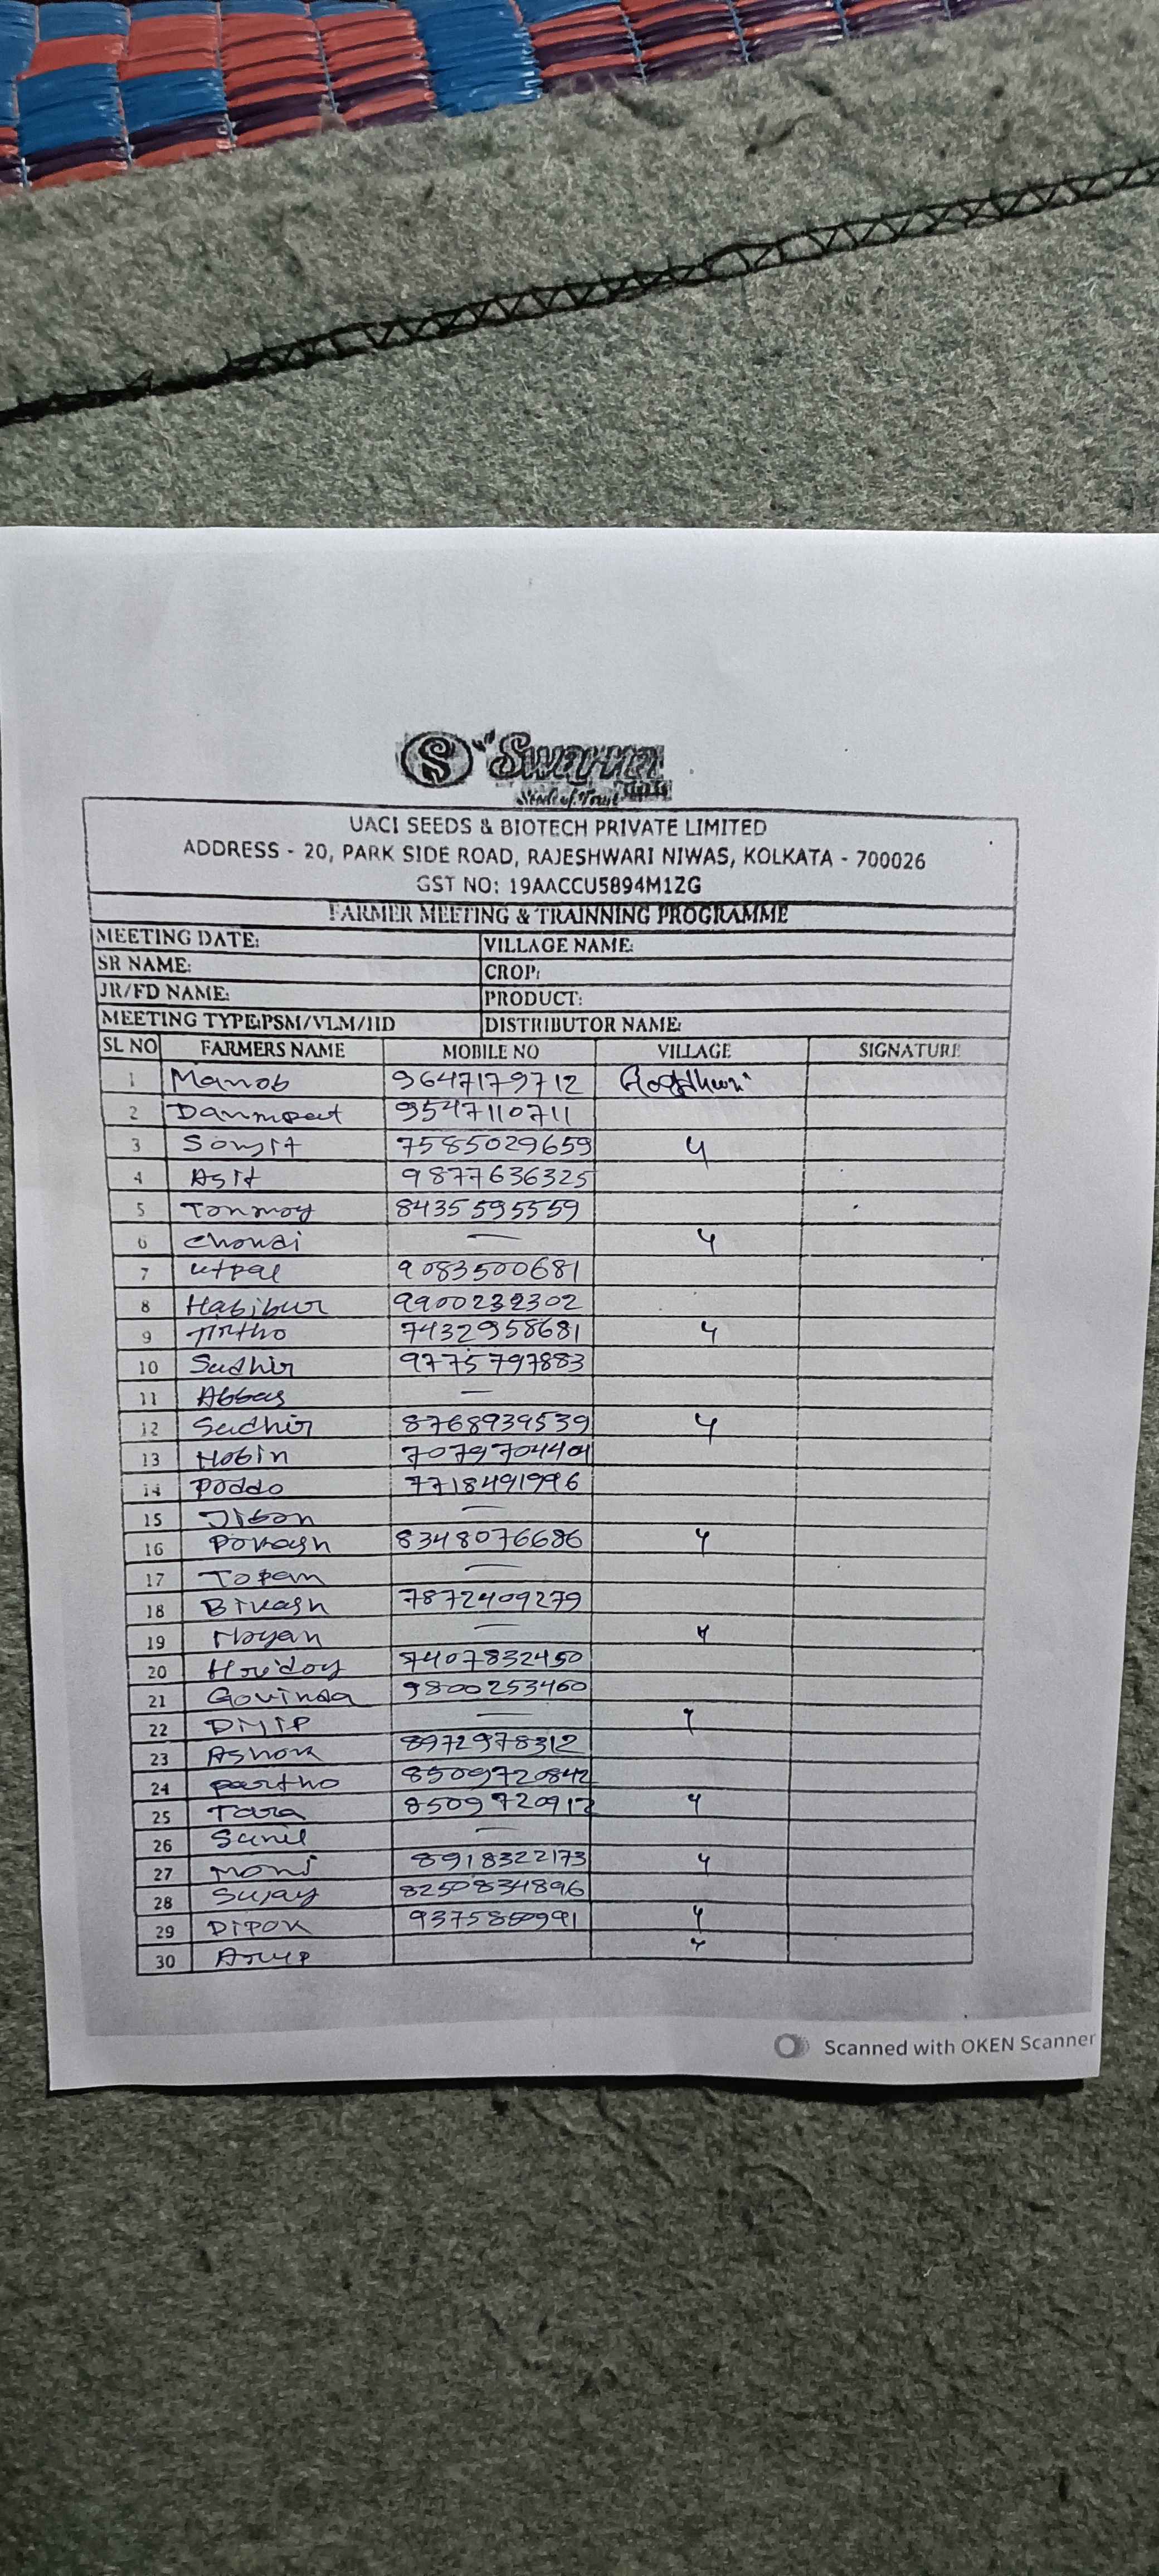 S Swarna
Seeds of Trust
UACI SEEDS & BIOTECH PRIVATE LIMITED
ADDRESS - 20, PARK SIDE ROAD, RAJESHWARI NIWAS, KOLKATA - 700026
GST NO: 19AACCU5894M1ZG
FARMER MEETING & TRAINNING PROGRAMME
MEETING DATE: VILLAGE NAME:
SR NAME: CROP:
JR/FD NAME: PRODUCT:
MEETING TYPE:PSM/VLM/IID DISTRIBUTOR NAME:
SL NO FARMERS NAME MOBILE NO VILLAGE SIGNATURE
1 Manob 9647179712
2 9547110711
3 Sonjit 7585029659 4
4 Asit 9877636325
5 Tonmoy 8435595559
6 Chonai — 4
7 utpal 9083500681
8 Habibur 9900232302
9 Tirtho 7432958681 4
10 Sudhir 9775797883
11 Abbas —
12 Sudhir 8768939539 4
13 Nobin 7079704401
14 Poddo 7718491996
15 Jibon —
16 Pokash 8348076686 4
17 Topam —
18 Bikash 7872409279
19 Nayan — 4
20 Hridoy 7407832450
21 Govinda 9800253460
22 DILIP — 4
23 Ashok 8972978312
24 partho 8509720842
25 Tara 8509720912 4
26 Sunil —
27 Moni 8918322173 4
28 Sujay 8250834896
29 DIPOK 9375850991 4
30 Arup 4
Scanned with OKEN Scanner